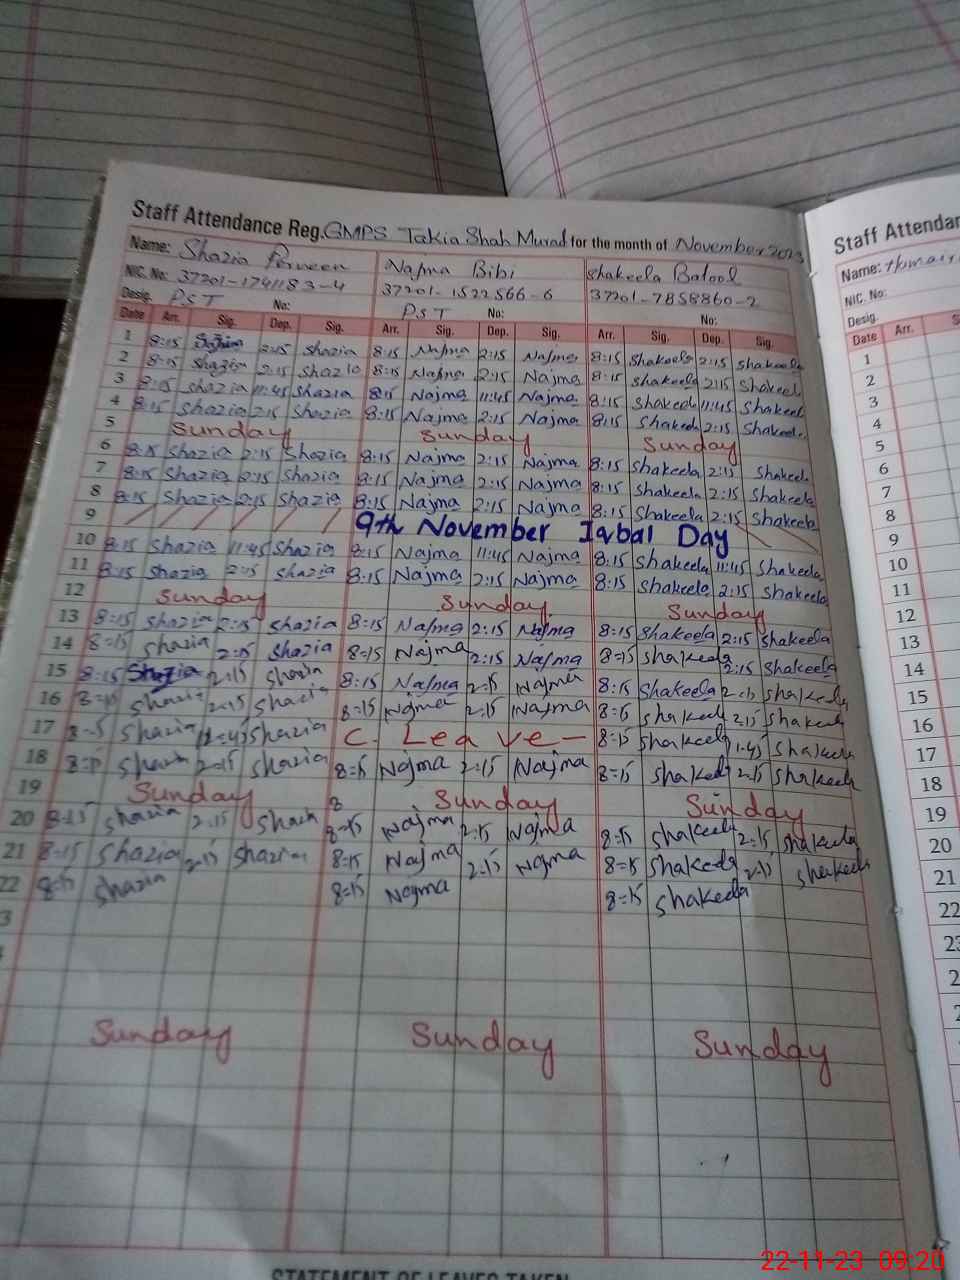 Staff Attendance Reg. GMPS Takia Shah Murad for the month of November 2023
Name: Shazia Perveen Najma Bibi Shakeela Batool
NIC. No: 37201-1741183-4 37201-1522566-6 37201-7858860-2
Desig. PST No: PST No: No:
Date Arr. Sig. Dep. Sig. Arr. Sig. Dep. Sig. Arr. Sig. Dep. Sig.
1 8:15 2:15 Shazia 8:15 Najma 2:15 Najma 8:15 Shakeela 2:15 Shakeela
2 8:15 Shazia 2:15 Shazia 8:15 Najma 2:15 Najma 8:15 Shakeela 2:15 Shakeel
3 8:15 Shazia 11:45 Shazia 8:15 Najma 11:45 Najma 8:15 Shakeel 11:45 Shakeel
4 8:15 Shazia 2:15 Shazia 8:15 Najma 2:15 Najma 8:15 Shakeel 2:15 Shakeel
5 Sunday Sunday Sunday
6 8:15 Shazia 2:15 Shazia 8:15 Najma 2:15 Najma 8:15 Shakeela 2:15 Shakeel
7 8:15 Shazia 2:15 Shazia 8:15 Najma 2:15 Najma 8:15 Shakeela 2:15 Shakeel
8 8:15 Shazia 2:15 Shazia 8:15 Najma 2:15 Najma 8:15 Shakeela 2:15 Shakeela
9 9th November Iqbal Day
10 8:15 Shazia 11:45 Shazia 8:15 Najma 11:45 Najma 8:15 Shakeela 11:45 Shakeela
11 8:15 Shazia 2:15 Shazia 8:15 Najma 2:15 Najma 8:15 Shakeela 2:15 Shakeela
12 Sunday Sunday Sunday
13 8:15 Shazia 2:15 Shazia 8:15 Najma 2:15 Najma 8:15 Shakeela 2:15 Shakeela
14 8=15 Shazia 2:15 Shazia 8=15 Najma 2:15 Najma 8=15 Shakeela 2:15 Shakeela
15 8:15 Shazia 2:15 Shazia 8:15 Najma 2:15 Najma 8:15 Shakeela 2:15 Shakeela
16 Shazia 2:15 Shazia 8=15 Najma 2:15 Najma 8=15 Shakeela 2:15 Shakeela
17 Shazia Shazia C. Leave - 8=15 Shakeela 1:45 Shakeela
18 8=15 Shazia 2:15 Shazia 8=15 Najma 2:15 Najma 8=15 Shakeela 2:15 Shakeela
19 Sunday 8 Sunday Sunday
20 8:15 Shazia 2:15 Shazia 8=15 Najma 2:15 Najma 8=15 Shakeela 2:15 Shakeela
21 8=15 Shazia 2:15 Shazia 8=15 Najma 2:15 Najma 8=15 Shakeela 2:15 Shakeela
22 8=15 Shazia 8=15 Najma 8=15 Shakeela
Sunday Sunday Sunday
STATEMENT OF LEAVES TAKEN
Staff Attendan
Name:
NIC. No:
Desig.
Date Arr. S
1
2
3
4
5
6
7
8
9
10
11
12
13
14
15
16
17
18
19
20
21
22
23
22-11-23 09:20